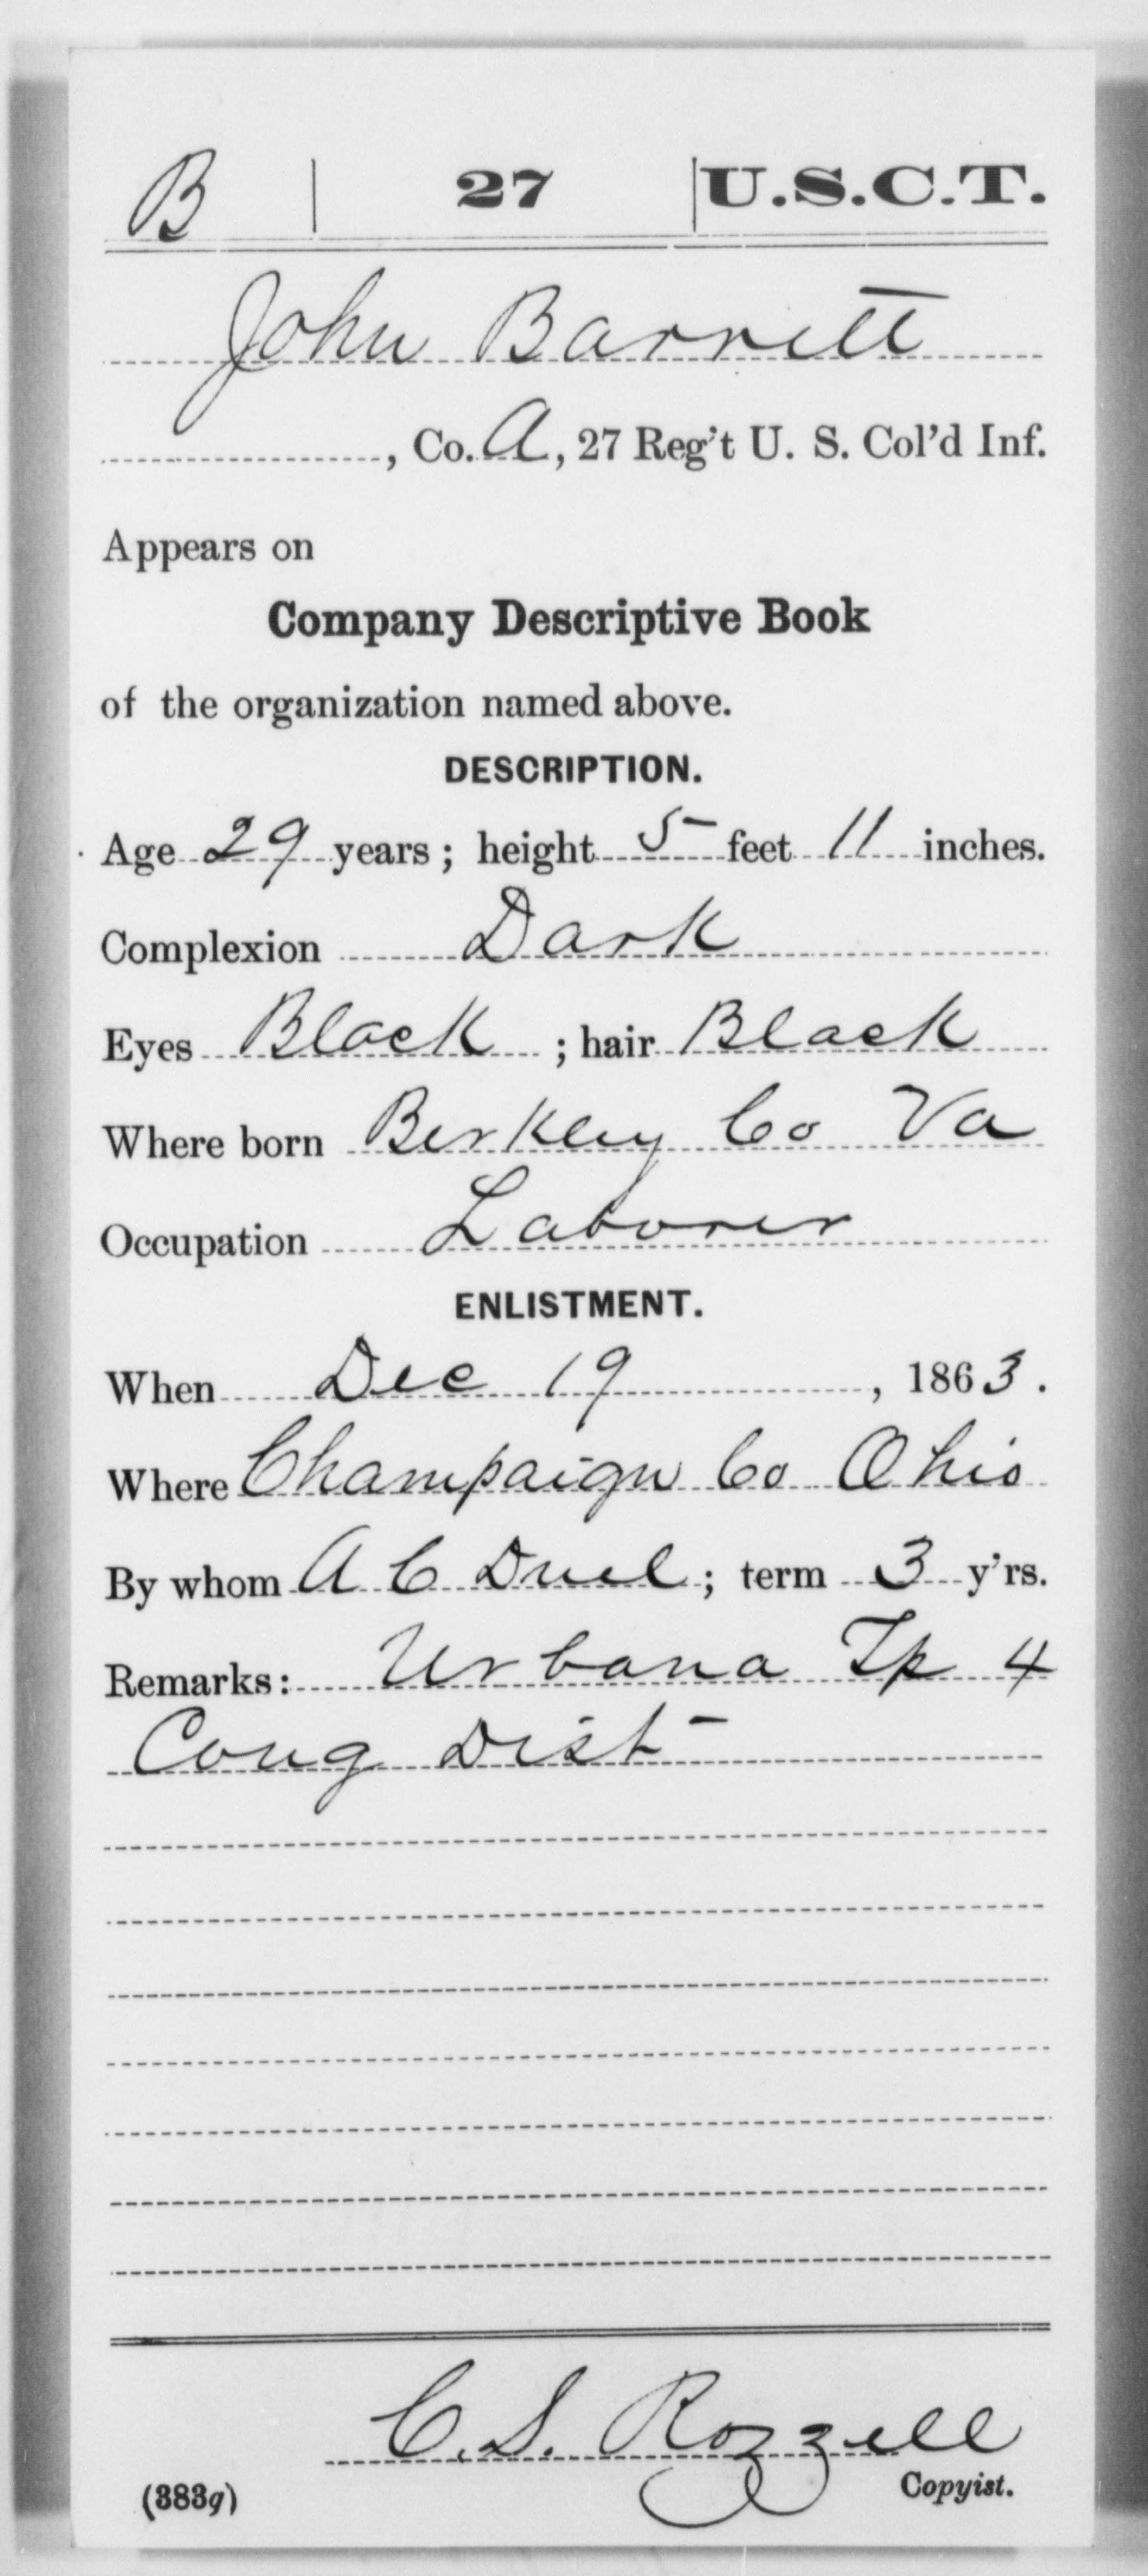 B | 27 | U.S.C.T.
John Barrett
, Co. A, 27 Reg't U. S. Col'd Inf.
Appears on
Company Descriptive Book
of the organization named above.
DESCRIPTION.
Age 29 years; height 5 feet 11 inches.
Complexion Dark
Eyes Black ; hair Black
Where born Berkley Co Va
Occupation Laborer
ENLISTMENT.
When Dec 19, 1863.
Where Champaign Co Ohio
By whom A C Duel; term 3 y'rs.
Remarks: Urbana Tp 4
Cong Dist
C. S. Rozzell
(383g) Copyist.